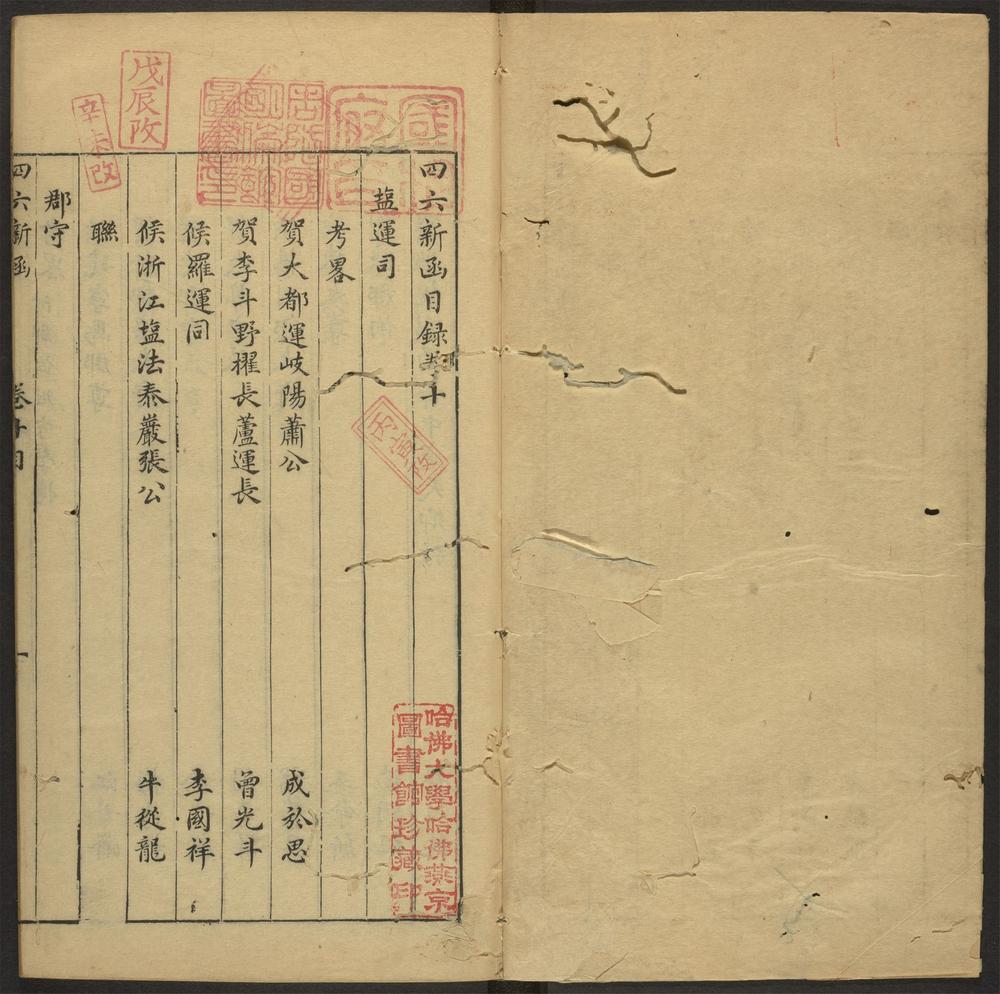 四六新函目録卷十
塩運司
考畧
賀大都運岐陽蕭公 成於思
賀李斗野擢長蘆運長 曾光斗
候羅運同 李國祥
候浙江塩法泰巖張公 牛從龍
聯
郡守
四六新函 卷十目 一
戊辰改
辛未改
丙寅改
哈佛大學哈佛燕京
圖書館珍藏印